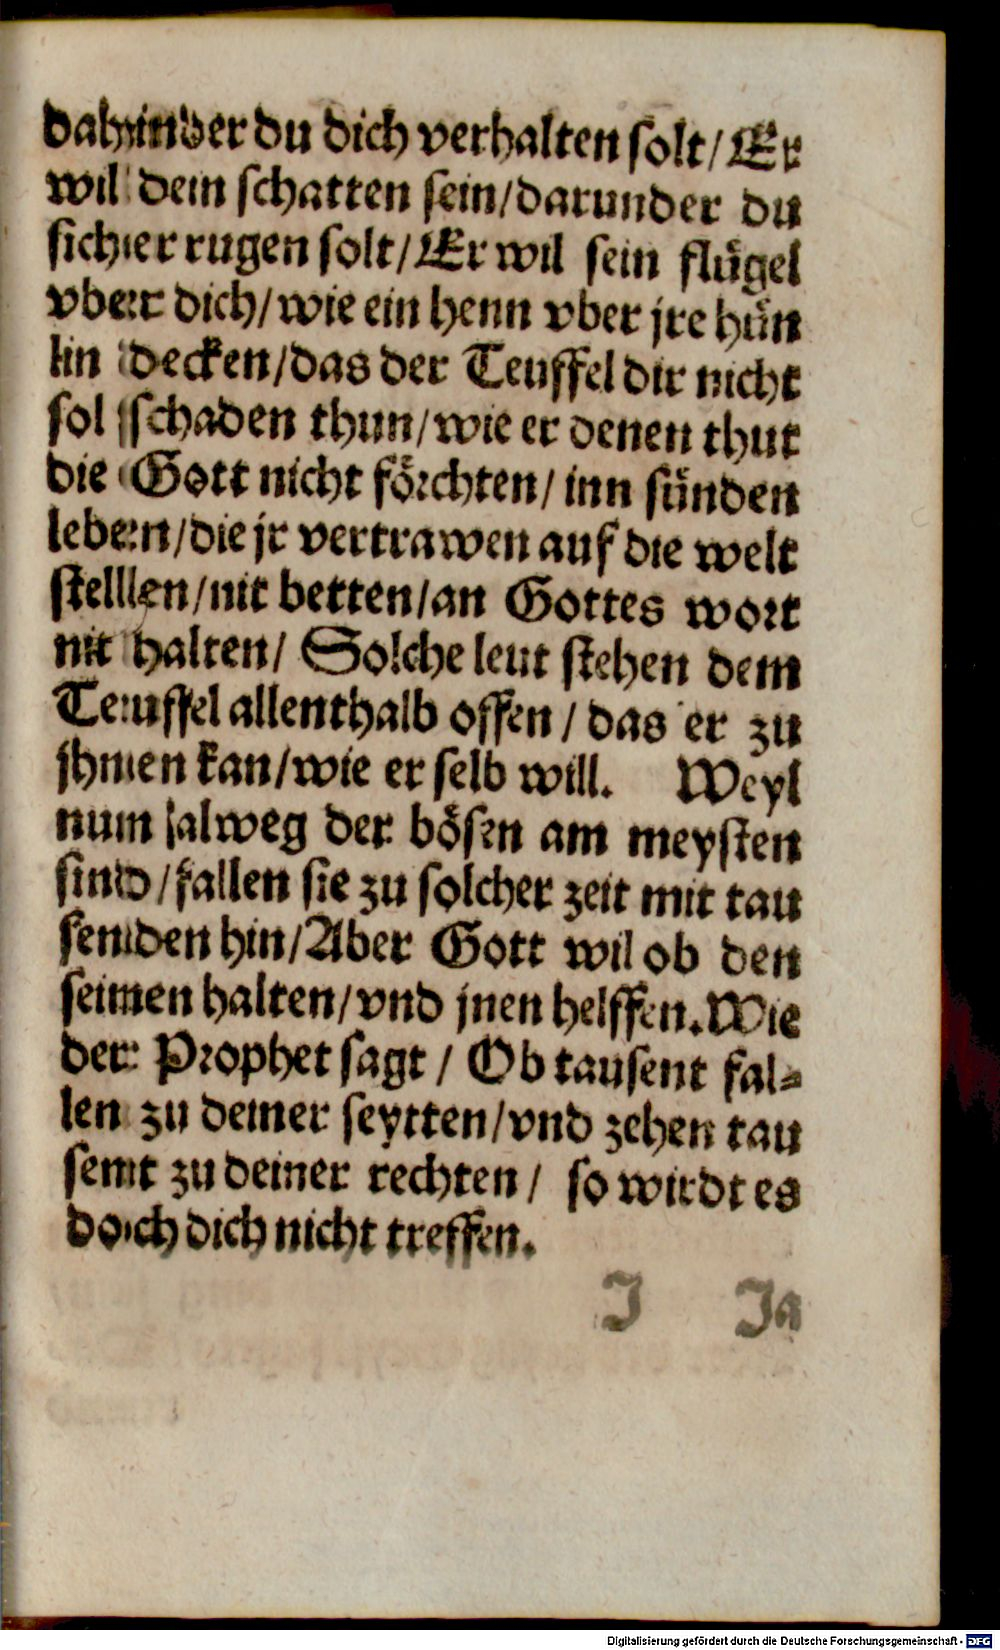 dahinder du dich verhalten solt/ Er
wil dein schatten sein/ darunder du
sicher rugen solt/ Er wil sein flügel
vber dich/ wie ein henn vber jre hün
lin decken/ das der Teuffel dir nicht
sol schaden thun/ wie er denen thut
die Gott nicht förchten/ inn sünden
leben/ die jr vertrawen auf die welt
stellen/ nit betten/ an Gottes wort
nit halten/ Solche leut stehen dem
Teuffel allenthalb offen/ das er zu
jhnen kan/ wie er selb will. Weyl
nun alweg der bösen am meysten
sind/ fallen sie zu solcher zeit mit tau
senden hin/ Aber Gott wil ob den
seinen halten/ vnd jnen helffen. Wie
der Prophet sagt/ Ob tausent fal-
len zu deiner seytten/ vnd zehen tau
sent zu deiner rechten/ so wirdt es
doch dich nicht treffen.
J Ja
Digitalisierung gefördert durch die Deutsche Forschungsgemeinschaft - DFG